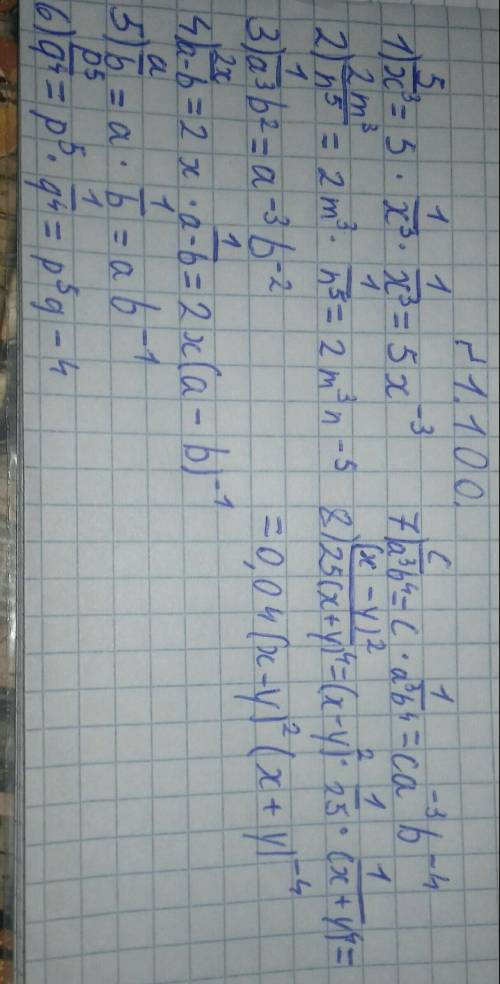 №1.100.
1) 5/x³ = 5 · 1/x³ · 1/x³ = 5x⁻³
2) 2m³/n⁵ = 2m³ · 1/n⁵ = 2m³n⁻⁵
3) 1/a³b² = a⁻³b⁻²
4) 2x/a-b = 2x · 1/a-b = 2x(a-b)⁻¹
5) a/b = a · 1/b = ab⁻¹
6) p⁵/q⁴ = p⁵ · 1/q⁴ = p⁵q-4
7) c/a³b⁴ = c · 1/a³b⁴ = ca⁻³b⁻⁴
8) (x-y)²/25(x+y)⁴ = (x-y)² · 1/25 · 1/(x+y)⁴ =
= 0,04(x-y)²(x+y)⁻⁴